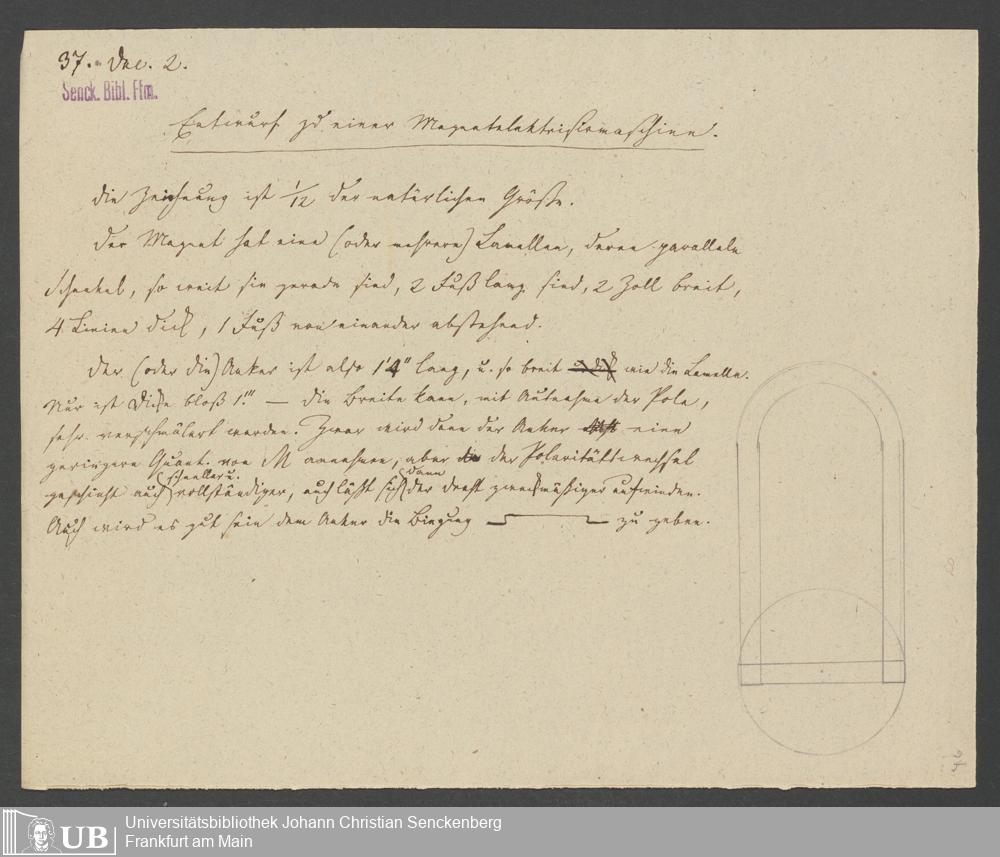 37. Dec. 2.
Senck. Bibl. Ffm.
Entwurf zu einer Magnetelektrisirmaschine.
Die Zeichnung ist 1/12 der natürlichen Größe.
Der Magnet hat eine (oder mehrere) Lamellen, deren parallele
Schenkel, so weit sie gerade sind, 2 Fuß lang sind, 2 Zoll breit,
4 Linien dick, 1 Fuß von einander abstehend.
Der (oder die) Anker ist also 1'4" lang, u. so breit u. dick wie die Lamelle.
Nur ist Dicke bloß 1'''. — Die Breite kann, mit Ausnahme der Pole,
sehr verschmälert werden. Zwar wird dann der Anker eine
geringere Quant. von M annehmen, aber der Polaritätswechsel
geschieht auch schneller u. vollständiger, auch läßt sich dann der Draht zweckmäßiger aufwinden.
Auch wird es gut sein dem Anker die Biegung zu geben.
UB
Universitätsbibliothek Johann Christian Senckenberg
Frankfurt am Main